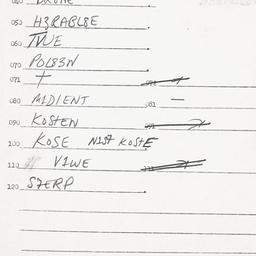 050 H3RABL8E
060 TVUE
070 POL83N
071 +
080 MIDIENT 081 —
090 KOSTEN 091
100 KOSE N1ST KOSTE
110 V1WE 111
120 S7ERP